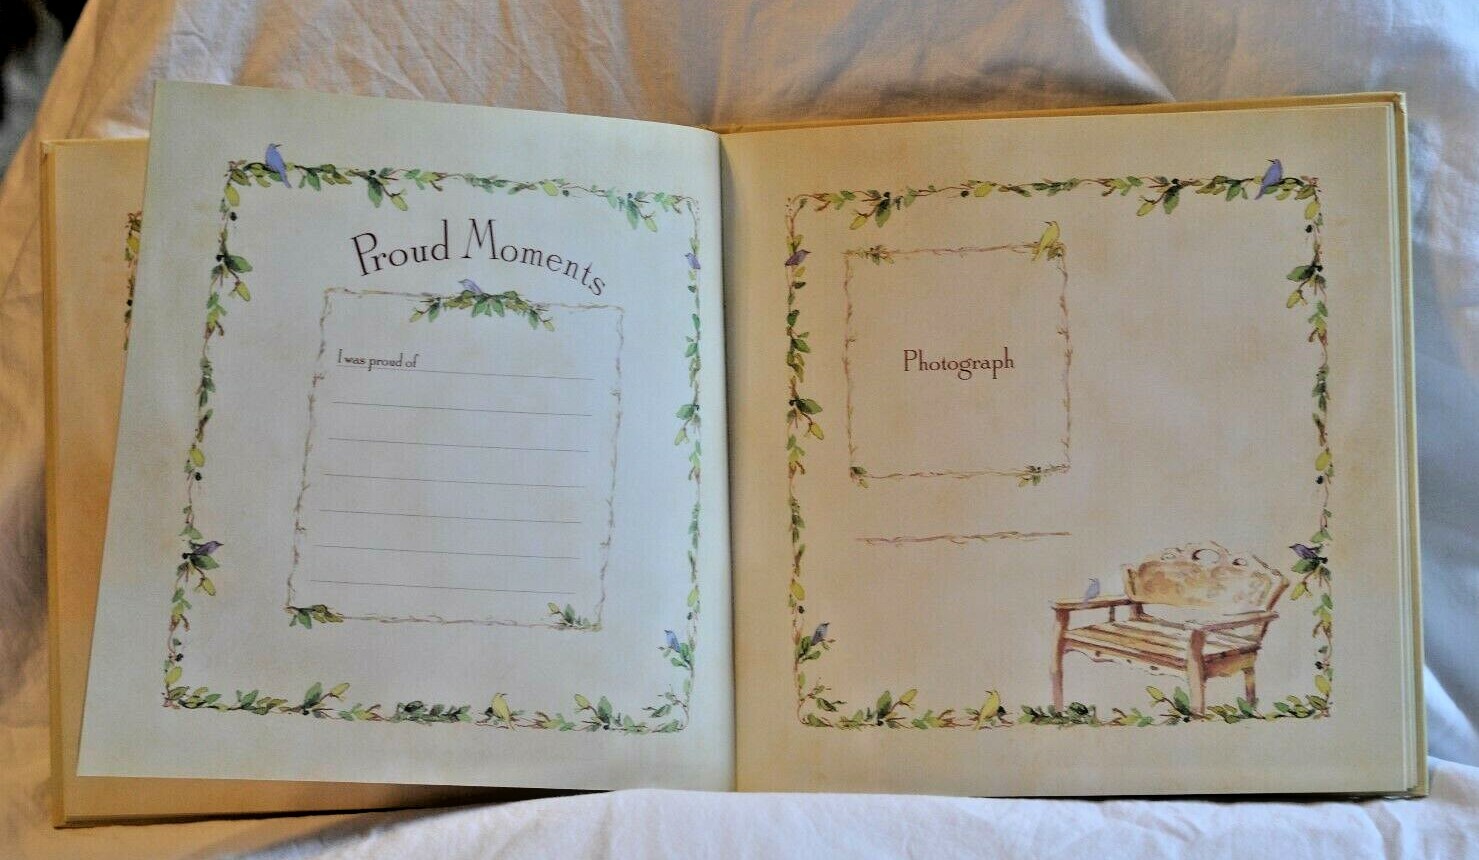 Proud Moments
I was proud of
Photograph